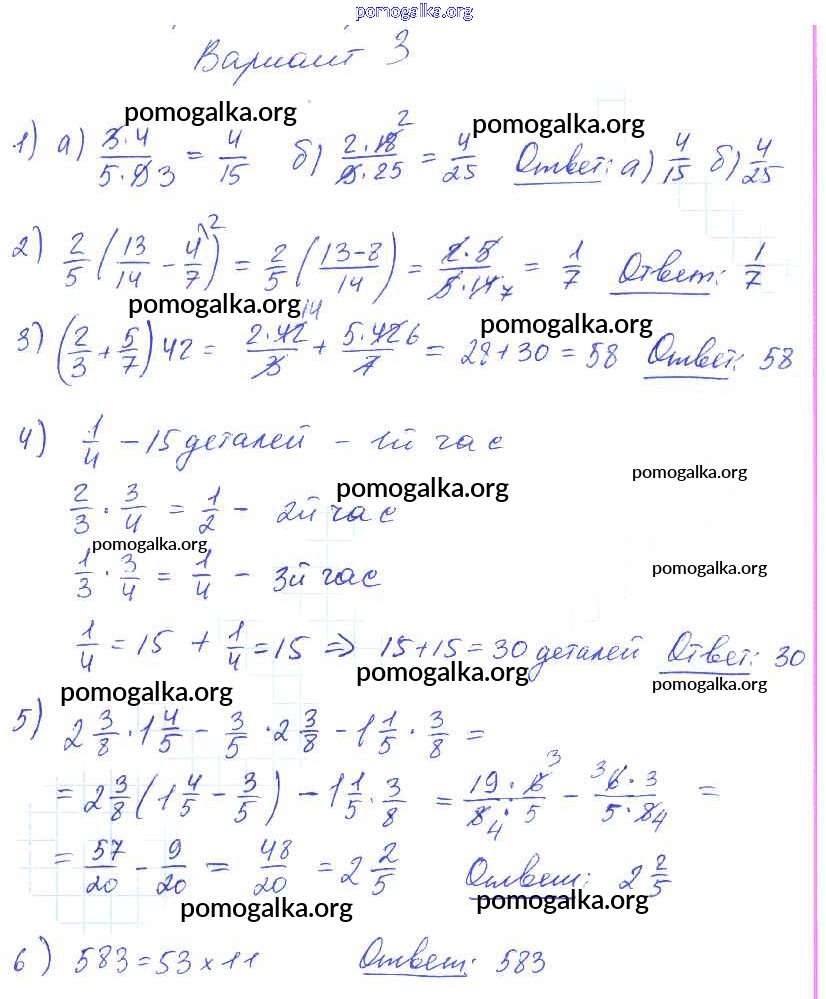 pomogalka.org
Вариант 3
pomogalka.org pomogalka.org
1) а) 3·4/5·9 3 = 4/15 б) 2·18 2/9·25 = 4/25 Ответ: а) 4/15 б) 4/25
2) 2/5 (13/14 - 4/7 \2) = 2/5 (13-8/14) = 2·5/5·14 7 = 1/7 Ответ: 1/7
pomogalka.org pomogalka.org
3) (2/3 + 5/7) 42 = 2·42 14/3 + 5·42 6/7 = 28+30 = 58 Ответ: 58
4) 1/4 - 15 деталей - 1й час
pomogalka.org pomogalka.org
2/3 · 3/4 = 1/2 - 2й час
pomogalka.org
1/3 · 3/4 = 1/4 - 3й час pomogalka.org
1/4 = 15 + 1/4 = 15 => 15+15 = 30 деталей Ответ: 30
pomogalka.org pomogalka.org pomogalka.org
5) 2 3/8 · 1 4/5 - 3/5 · 2 3/8 - 1 1/5 · 3/8 =
= 2 3/8 (1 4/5 - 3/5) - 1 1/5 · 3/8 = 19·6 3/8 4·5 - 3 6·3/5·8 4 =
= 57/20 - 9/20 = 48/20 = 2 2/5 Ответ: 2 2/5
pomogalka.org pomogalka.org
6) 583 = 53 x 11 Ответ: 583